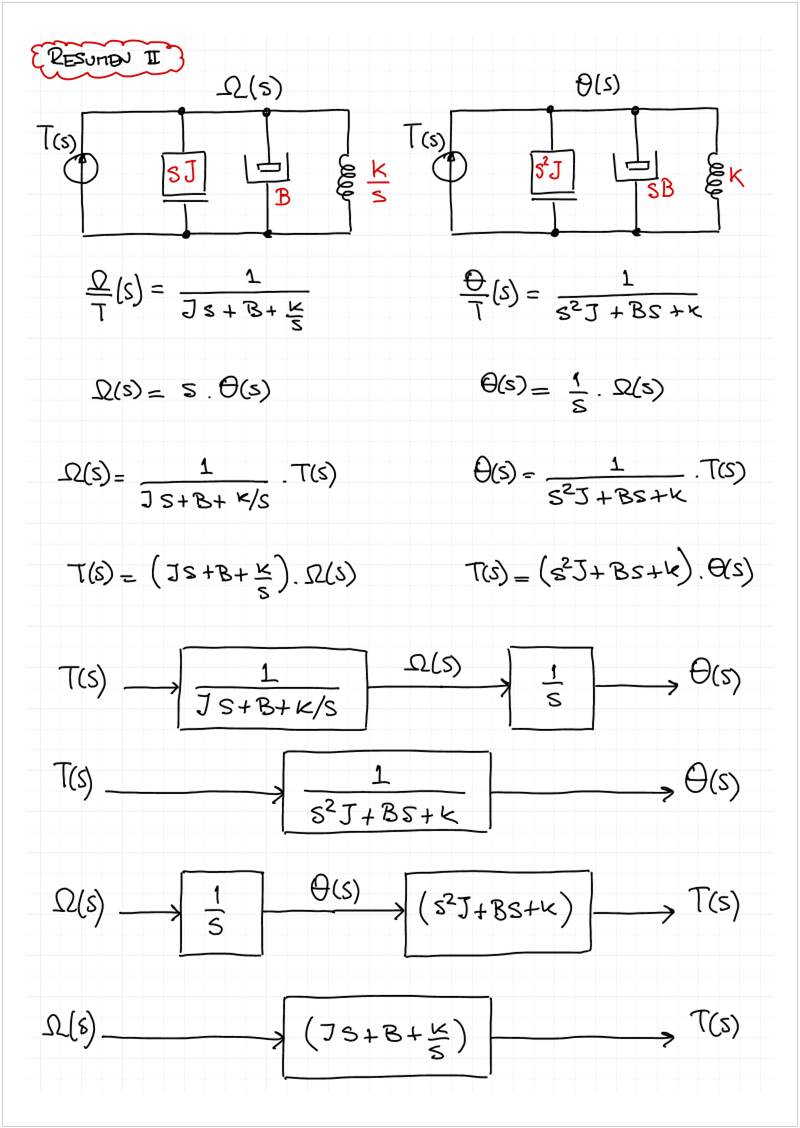 RESUMEN II
Ω(s) θ(s)
T(s) sJ B K/s T(s) s²J sB K
Ω/T (s) = 1/(Js+B+K/s) θ/T (s) = 1/(s²J+Bs+K)
Ω(s) = s . θ(s) θ(s) = 1/s . Ω(s)
Ω(s) = 1/(Js+B+K/s) . T(s) θ(s) = 1/(s²J+Bs+K) . T(s)
T(s) = (Js+B+K/s) . Ω(s) T(s) = (s²J+Bs+K) . θ(s)
T(s) 1/(Js+B+K/s) Ω(s) 1/s θ(s)
T(s) 1/(s²J+Bs+K) θ(s)
Ω(s) 1/s θ(s) (s²J+Bs+K) T(s)
Ω(s) (Js+B+K/s) T(s)